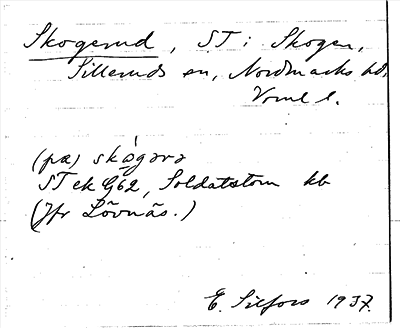 Skogerud, ST i Skogen,
Silleruds sn, Nordmarks hd,
Vrml l.
(pæ) skógərə
ST ek G62, Soldattorn kb
(Jfr Lövnäs.)
E. Silfors 1937.